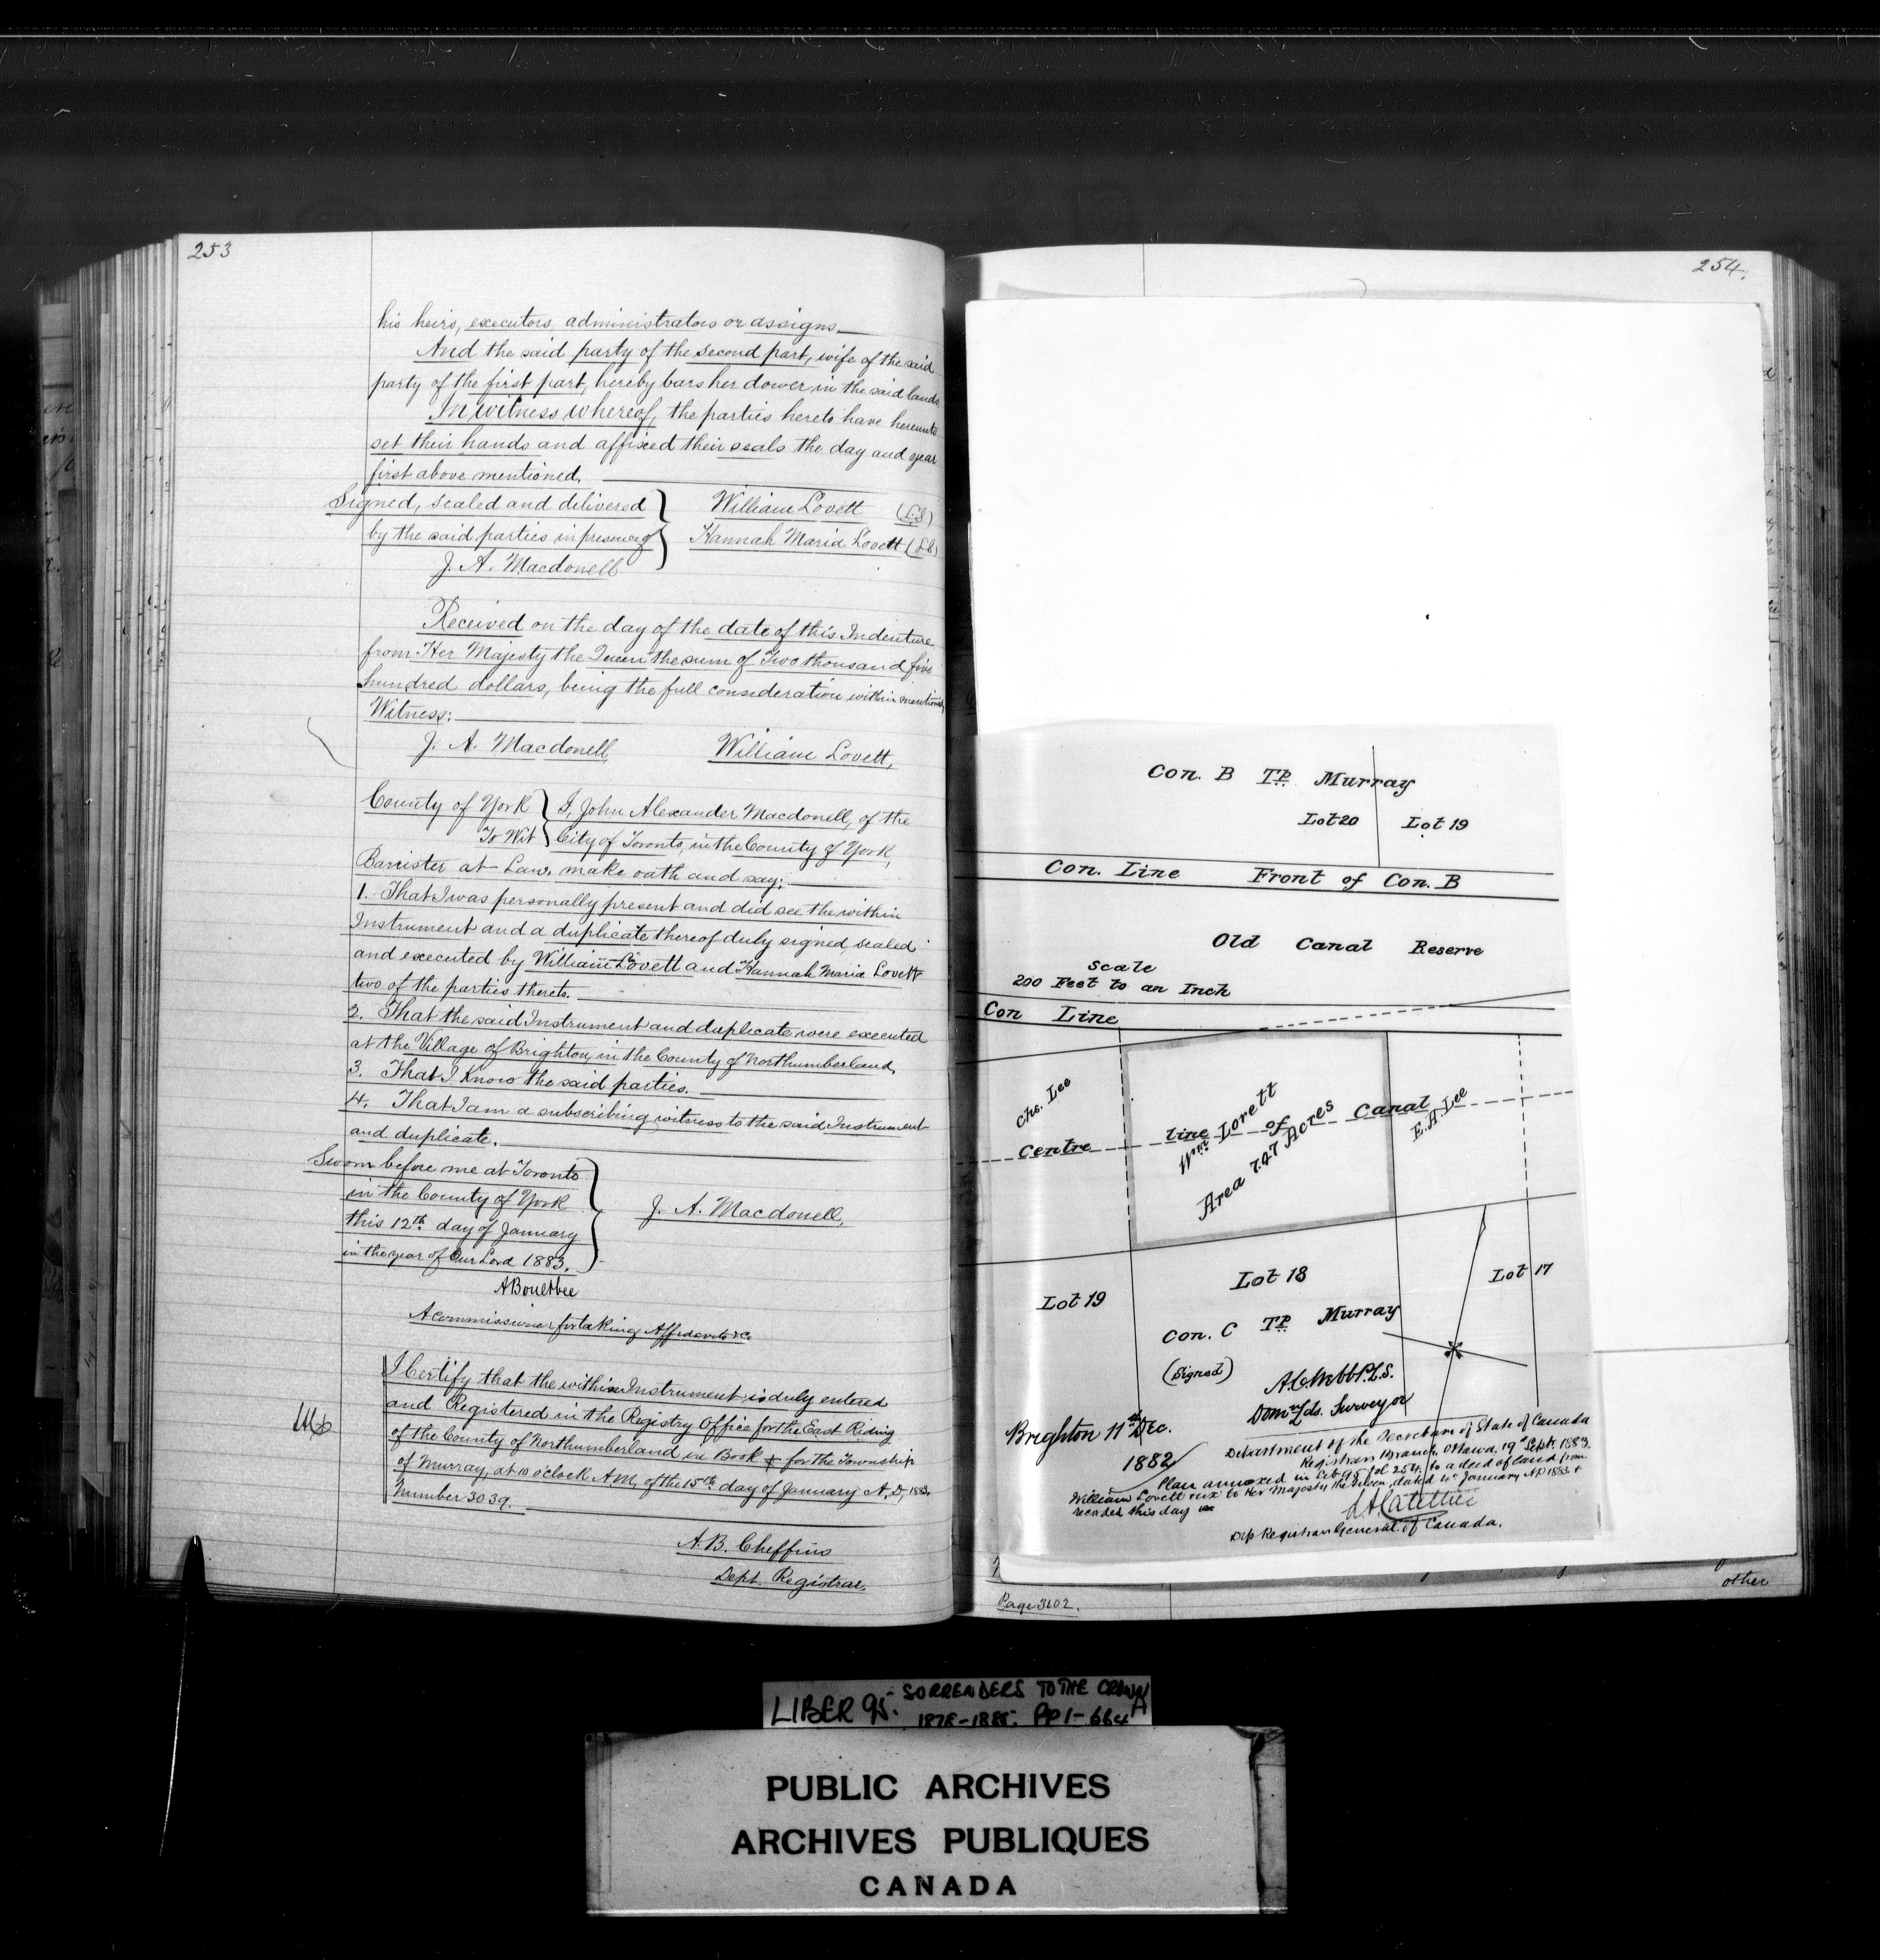 253
his heirs, executors, administrators or assigns.
And the said party of the second part, wife of the said
party of the first part, hereby bars her dower in the said lands.
In witness whereof, the parties hereto have hereunto
set their hands and affixed their seals the day and year
first above mentioned.
Signed, sealed and delivered William Lovett (L.S)
by the said parties in presence of Hannah Maria Lovett (LS)
J. A. Macdonell
Received on the day of the date of this Indenture
from Her Majesty the Queen the sum of Two thousand five
hundred dollars, being the full consideration within mentioned,
Witness:
J. A. Macdonell William Lovett,
County of York I, John Alexander Macdonell, of the
To Wit City of Toronto, in the County of York,
Barrister at Law, make oath and say:
1. That I was personally present and did see the within
Instrument and a duplicate thereof duly signed, sealed
and executed by William Lovett and Hannah Maria Lovett
two of the parties thereto.
2. That the said Instrument and duplicate were executed
at the Village of Brighton, in the County of Northumberland,
3. That I know the said parties.
4. That I am a subscribing witness to the said Instrument
and duplicate.
Sworn before me at Toronto
in the County of York
this 12th day of January J. A. Macdonell,
in the year of Our Lord 1883.
A Boultbee
A Commissioner for taking Affidavits &c
I Certify that the within Instrument is duly entered
and Registered in the Registry Office for the East Riding
of the County of Northumberland in Book for the Township
of Murray, at 10 o'clock A.M, of the 15th day of January A, D, 1883,
Number 3039.
A. B. Cheffins
Dept. Registrar.
254.
Con. B Tp. Murray
Lot 20 Lot 19
Con. Line Front of Con. B
Old Canal Reserve
Scale
200 Feet to an Inch
Con Line
Chs. Lee
Wm. Lovett
Area 7.47 Acres
E. A. Lee
Centre line of Canal
Lot 19 Lot 18 Lot 17
Con. C Tp. Murray
(Signed) A. C. Webb P.L.S.
Domn. Lds. Surveyor
Brighton 11th Dec.
1882
Department of the Secretary of State of Canada
Registrars Branch, Ottawa, 19th Septr. 1883.
Plan annexed in Lib 95 fol 254, to a deed of land from
William Lovett & ux to Her Majesty the Queen, dated 4th January AD 1883 &
recorded this day
Dep Registrar General of Canada.
other
Page 3102.
LIBER 95: SORRENDERS TO THE CROWN
1878-1885. PP 1-664A
PUBLIC ARCHIVES
ARCHIVES PUBLIQUES
CANADA